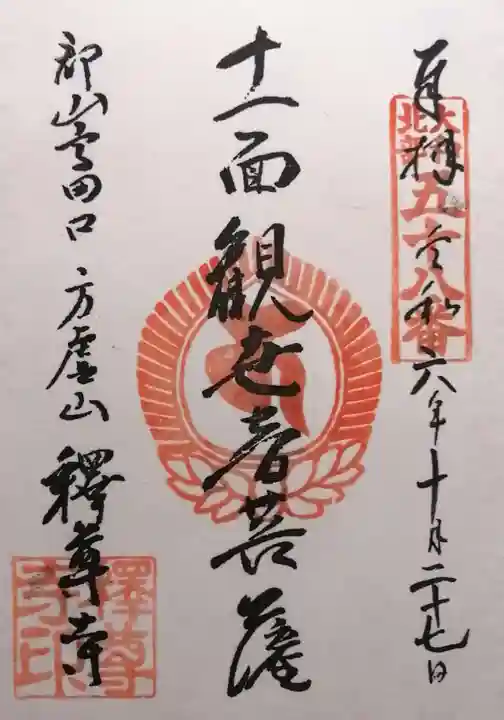 奉拝 令和六年十月二十七日
北部
五十八番
十一面観世音菩薩
郡山高田口 方虚山 釋尊寺
釋尊
寺印